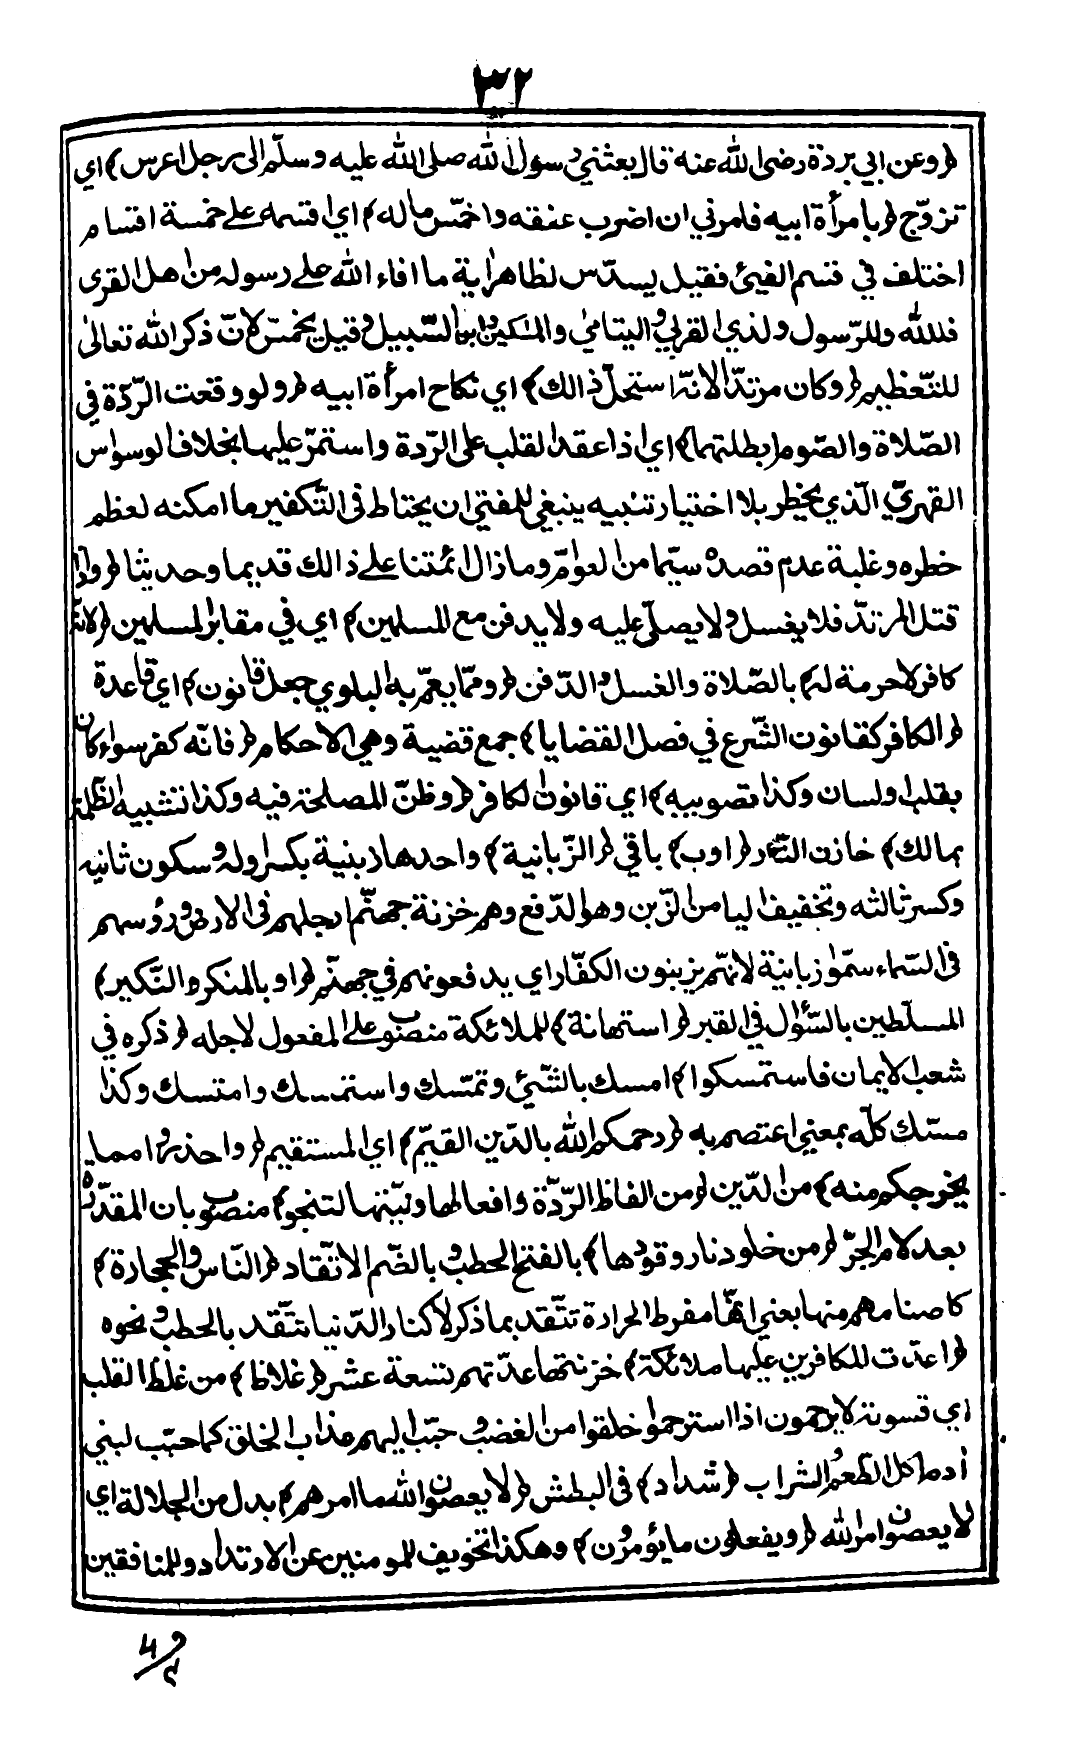 ٣٢
﴿وعن ابي بردة رضي الله عنه قال بعثني رسول الله صلى الله عليه وسلّم الى رجل اعرس﴾ اي
تزوّج ﴿بامرأة ابيه فامرني ان اضرب عنقه واخمّس ماله﴾ اي اقسمه على خمسة اقسام
اختلف في قسم الفيئ فقيل يسدّس لظاهر اية ما افاء الله على رسوله من اهل القرى
فلله وللرّسول ولذي القربي واليتامي والمسكين وابن السّبيل وقيل يخمّس لانّ ذكر الله تعالى
للتّعظيم ﴿وكان مرتدّا لانّه استحلّ ذالك﴾ اي نكاح امرأة ابيه ﴿ولو وقعت الرّدّة في
الصّلاة والصّوم ابطلتهما﴾ اي اذا عقد القلب على الرّدة واستمرّ عليها بخلاف الوسواس
القهريّ الّذي يخطر بلا اختيار تنبيه ينبغي للمفتي ان يحتاط في التّكفير ما امكنه لعظم
خطره وغلبة عدم قصده سيّما من العوامّ وما زال ائمتنا على ذالك قديما وحديثا ﴿واذا
قتل المرتدّ فلا يغسل ولا يصلّي عليه ولا يدفن مع المسلمين﴾ اي في مقابر المسلمين ﴿لانّه
كافر لا حرمة له﴾ بالصّلاة والغسل والدّفن ﴿وممّا يعمّ به البلوي جعل قانون﴾ اي قاعدة
﴿الكافر كقانون الشّرع في فصل القضايا﴾ جمع قضية وهي الاحكام ﴿فانّه كفر سواء كان
بقلب او لسان وكذا تصويبه﴾ اي قانون الكافر ﴿وظنّ المصلحة فيه وكذا تشبيه الظّلمة
بمالك﴾ خازن النّار ﴿او ب﴾ باقي ﴿الزّبانية﴾ واحدها زبنية بكسر اوله وسكون ثانيه
وكسر ثالثه وتخفيف اليا من الزّبن وهو الدّفع وهم خزنة جهنّم ارجلهم في الارض ورؤسهم
في السّماء سمّوا زبانية لانّهم يزبنون الكفّار اي يدفعونهم في جهنّم ﴿او بالمنكر والنّكير﴾
المسلّطين بالسّؤال في القبر ﴿استهانة﴾ للملائكة منصوب على المفعول لاجله ﴿ذكره في
شعب الايمان فاستمسكوا﴾ امسك بالشّيئ وتمسّك واستمسك وامتسك وكذا
مسّك كلّه بمعني اعتصم به ﴿رحمكم الله بالدّين القيّم﴾ اي المستقيم ﴿واحذروا مما
يخرجكم منه﴾ من الدّين ﴿من الفاظ الرّدّة وافعالها ونيّتها لتنجو﴾ منصوب بان المقدّرة
بعد لام الجرّ ﴿من خلود نار وقودها﴾ بالفتح الحطب وبالضّم الاتّقاد ﴿النّاس والحجارة﴾
كاصنامهم منها بعني انّها مفرط الحرارة تتّقد بما ذكر لا كنار الدّنيا تتّقد بالحطب ونحوه
﴿اعدّت للكافرين عليها ملائكة﴾ خزنتها عدّتهم تسعة عشر ﴿غلاظ﴾ من غلظ القلب
اي قسوته لا يرحمون اذا استرحموا خلقوا من الغضب وحبّب اليهم عذاب الخلق كما حبّب لبني
أدم اكل الطّعم والشراب ﴿شداد﴾ في البطش ﴿لا يعصون الله ما امرهم﴾ بدل من الجلالة اي
لا يعصون امر الله ﴿ويفعلون ما يؤمرون﴾ وهكذا تخويف للمومنين عن الارتداد وللمنافقين